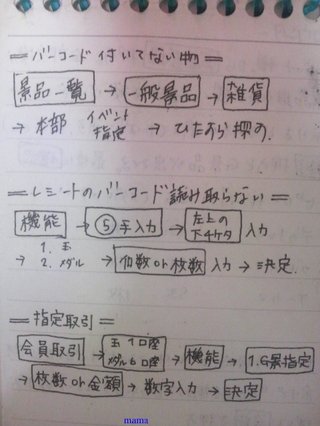 ＝バーコード付いてない物＝
景品一覧 → 一般景品 → 雑貨
→ 本部 イベント指定 → ひたすら探す。
＝レシートのバーコード読み取らない＝
機能 → ⑤手入力 → 左上の下4ケタ 入力
→ 1. 玉 2. メダル → 個数 or 枚数 入力 → 決定.
＝指定取引＝
会員取引 → 玉 1口座 メダル 6口座 → 機能 → 1.G景指定
→ 枚数 or 金額 → 数字入力 → 決定
mama